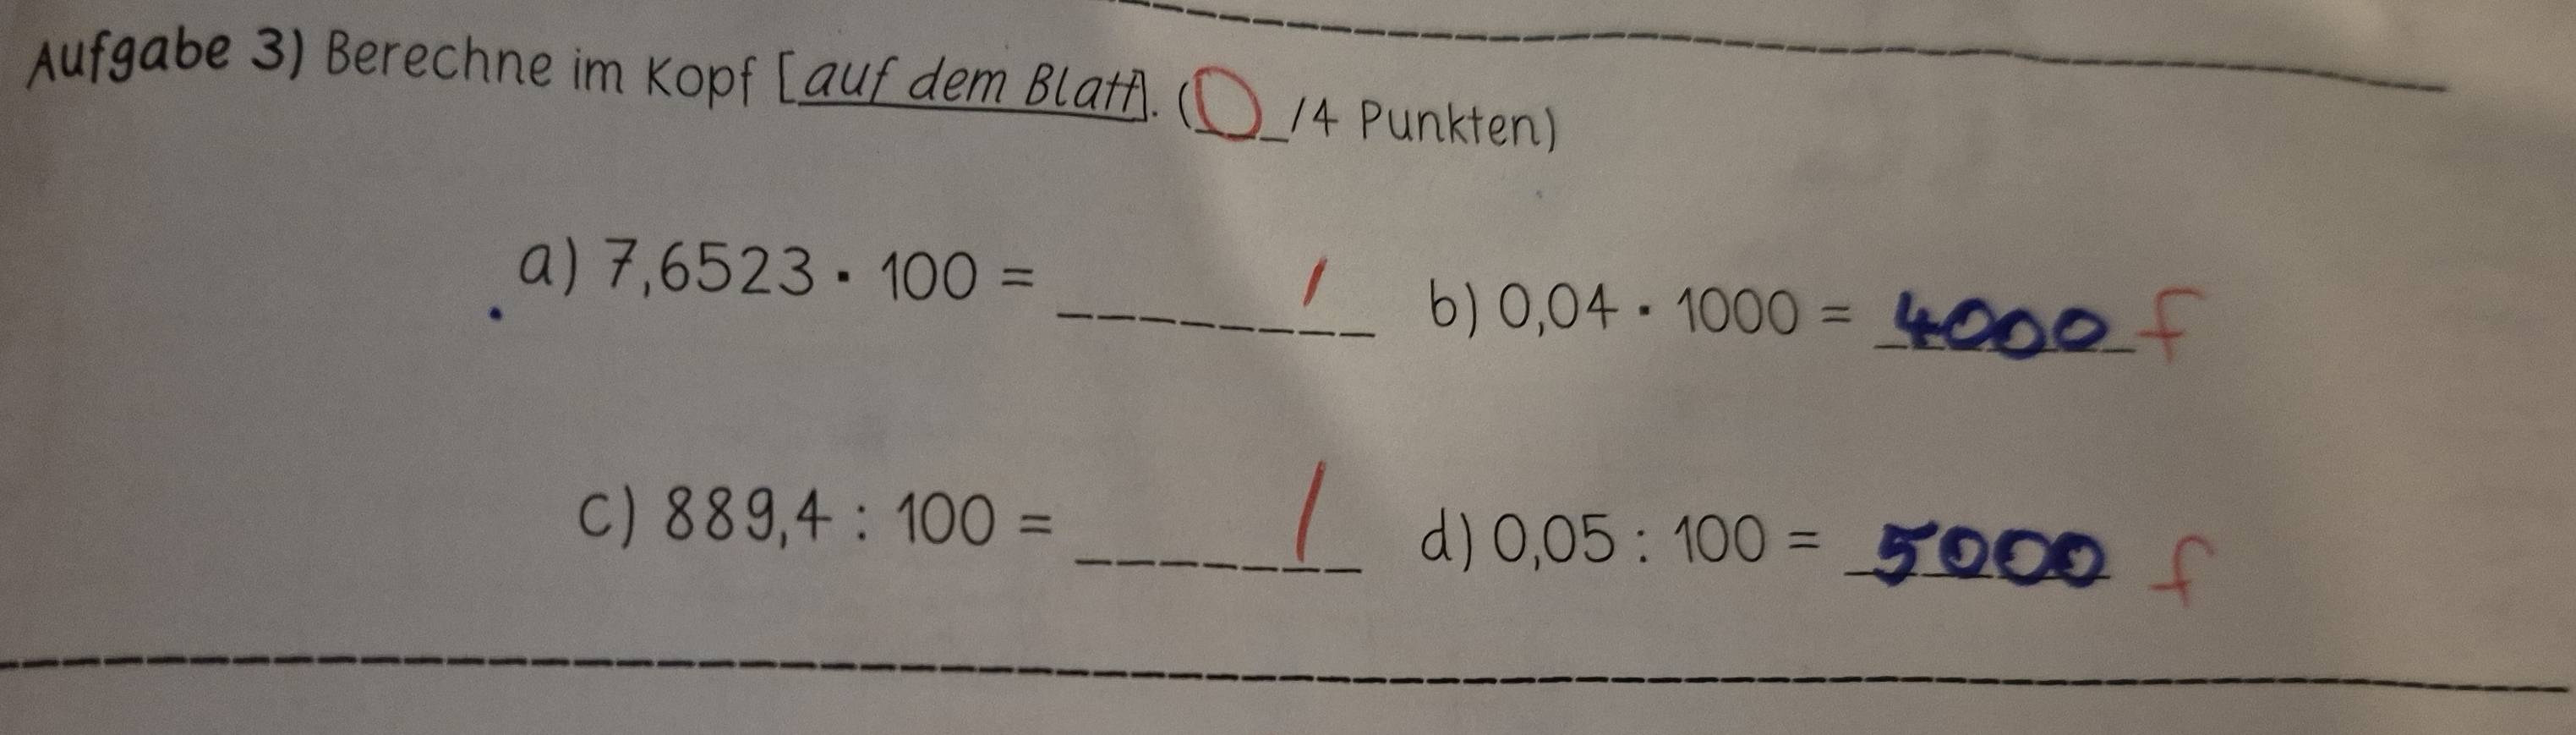 Aufgabe 3) Berechne im Kopf [auf dem Blatt]. (0_/4 Punkten)
a) 7,6523 · 100 = ________ / b) 0,04 · 1000 = 4000 f
c) 889,4 : 100 = ________ / d) 0,05 : 100 = 5000 f